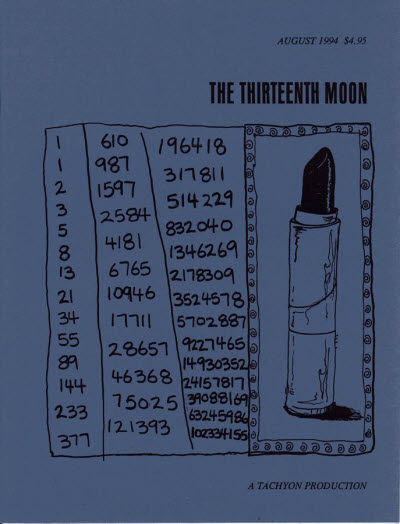 AUGUST 1994 $4.95
THE THIRTEENTH MOON
1
1
2
3
5
8
13
21
34
55
89
144
233
377
610
987
1597
2584
4181
6765
10946
17711
28657
46368
75025
121393
196418
317811
514229
832040
1346269
2178309
3524578
5702887
9227465
14930352
24157817
39088169
63245986
102334155
A TACHYON PRODUCTION